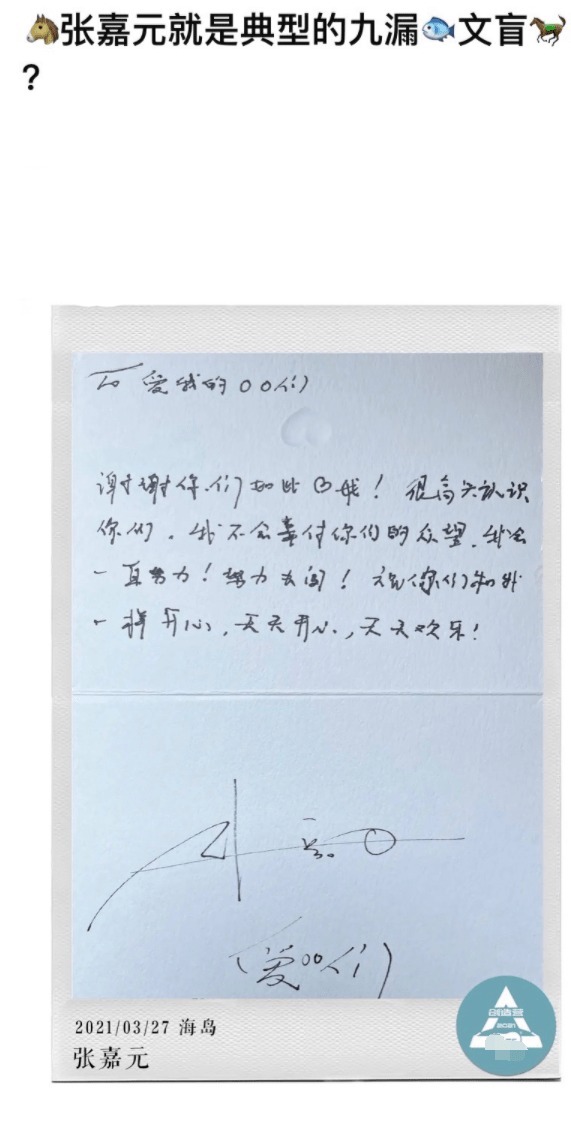 🐴张嘉元就是典型的九漏🐟文盲🐎
?
To 爱我的OO们
谢谢你们如此♡我!很高兴认识
你们。我不会辜付你们的众望,我会
一直努力!努力去闯!祝你们和我
一样开心,天天开心,天天欢乐!
张嘉元
(爱OO们)
创造营
2021
2021/03/27 海岛
张嘉元